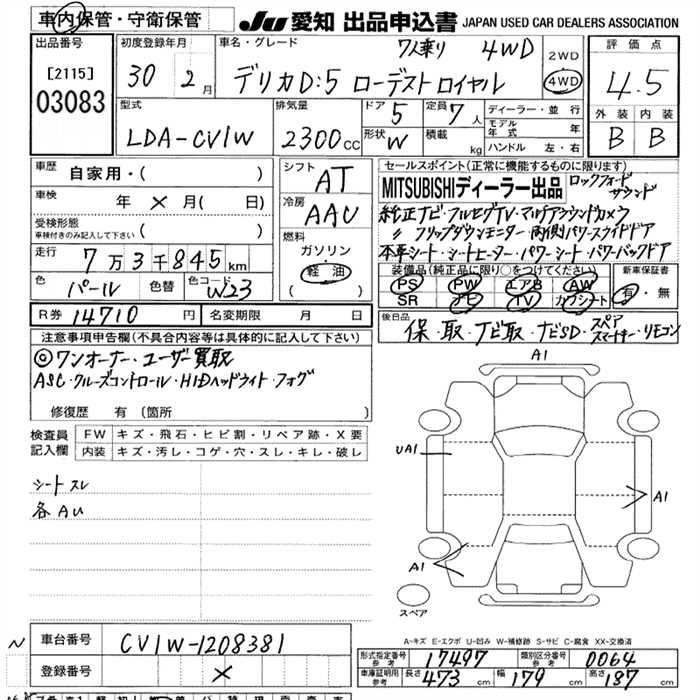 車内保管・守衛保管 JU 愛知 出品申込書 JAPAN USED CAR DEALERS ASSOCIATION
出品番号 初度登録年月 車名・グレード 7人乗り 4WD 2WD 評価点
[2115] 30年 2月 デリカD:5 ローデストロイヤル 4WD 4.5
03083
型式 排気量 ドア 5 定員 7人 ディーラー・並行 外装 内装
LDA-CV1W 2300cc 形状 W 積載 kg モデル年式 年 B B
ハンドル 左・右
車歴 自家用・( ) シフト AT セールスポイント(正常に機能するものに限ります)
車検 年 × 月( 日) 冷房 AAC MITSUBISHIディーラー出品 ロックフォード サウンド
受検形態 ( )
車検付きのみ記入して下さい
純正ナビ・フルセグTV・マルチアラウンドカメラ
〃 フリップダウンモニター・両側パワースライドドア
本革シート・シートヒーター・パワーシート・パワーバックドア
走行 7万3千845km 燃料 ガソリン・軽油 ( )
装備品(純正品に限り○をつけてください) 新車保証書
色 パール 色替 色コード W23 PS PW エアB AW 有・無
SR ナビ TV カワシート
R券 14710円 名変期限 月 日
後日品 保・取・ナビ取・ナビSD・スペア スマートキー・リモコン
注意事項申告欄(不具合内容等は具体的に記入して下さい)
◎ワンオーナー・ユーザー買取
ASC・クルーズコントロール・HIDヘッドライト・フォグ
修復歴 有(箇所 )
検査員記入欄 FW キズ・飛石・ヒビ割・リペア跡・X要
内装 キズ・汚レ・コゲ・穴・スレ・キレ・破レ
シートスレ
各AU
A1
UA1
A1
A1
スペア
A-キズ E-エクボ U-凹み W-補修跡 S-サビ C-腐食 XX-交換済
車台番号 CV1W-1208381
登録番号 ×
形式指定番号 参考 17497 類別区分番号 参考 0064
車庫証明用 参考 長さ 473cm 幅 179cm 高さ 187cm